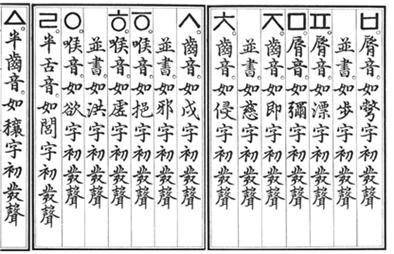 ㅂ。脣音。如彆字初發聲
並書。如步字初發聲
ㅍ。脣音。如漂字初發聲
ㅁ。脣音。如彌字初發聲
ㅈ。齒音。如即字初發聲
並書。如慈字初發聲
ㅊ。齒音。如侵字初發聲
ㅅ。齒音。如戌字初發聲
並書。如邪字初發聲
ㆆ。喉音。如挹字初發聲
ㅎ。喉音。如虛字初發聲
並書。如洪字初發聲
ㅇ。喉音。如欲字初發聲
ㄹ。半舌音。如閭字初發聲
ㅿ。半齒音。如穰字初發聲